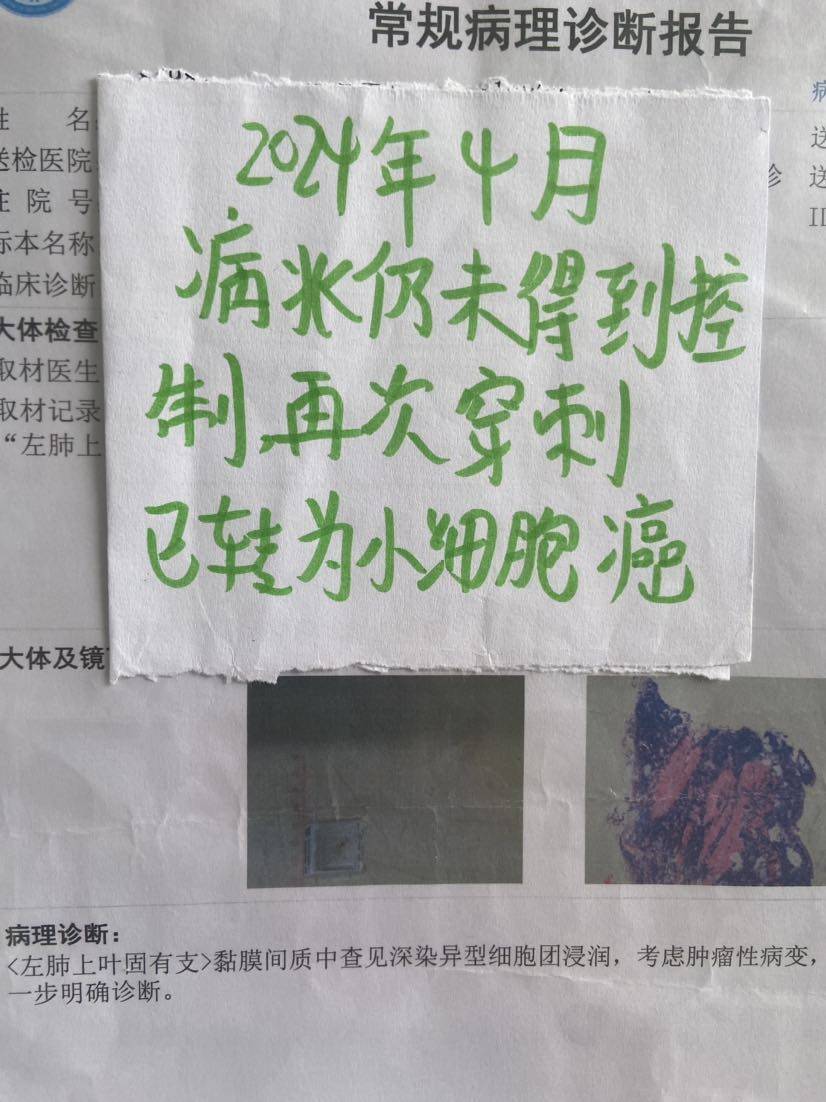 常规病理诊断报告
名
送检医院
住 院 号
标本名称
临床诊断
2024年4月
病状仍未得到控
制,再次穿刺
已转为小细胞癌
大体检查
取材医生
取材记录
“左肺上
大体及镜
病理诊断:
<左肺上叶固有支>黏膜间质中查见深染异型细胞团浸润，考虑肿瘤性病变，
一步明确诊断。